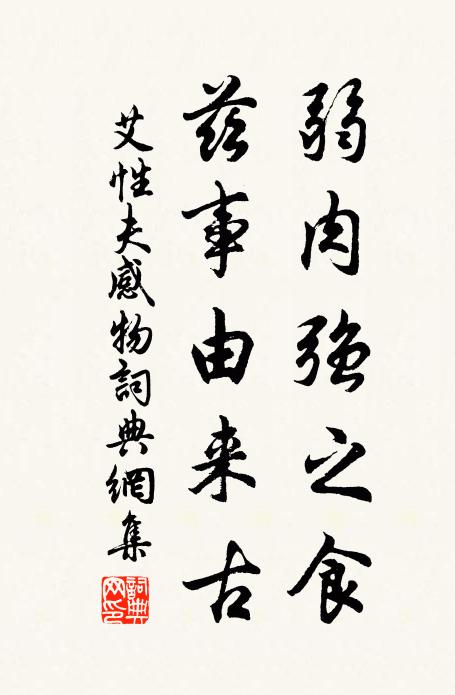 弱肉強之食
茲事由来古
艾性夫感物詞典網集
詞典
网印